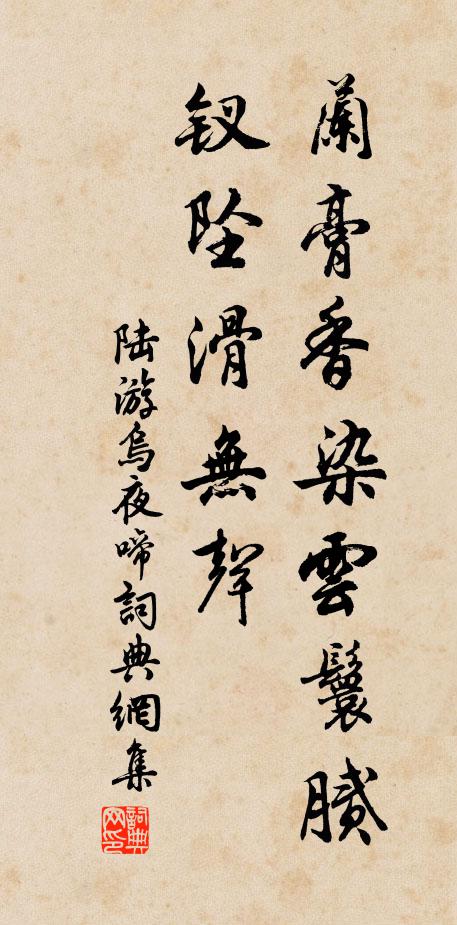 蘭膏香染雲鬟膩
釵墜滑無聲
陸游烏夜啼詞典網集
詞典网印